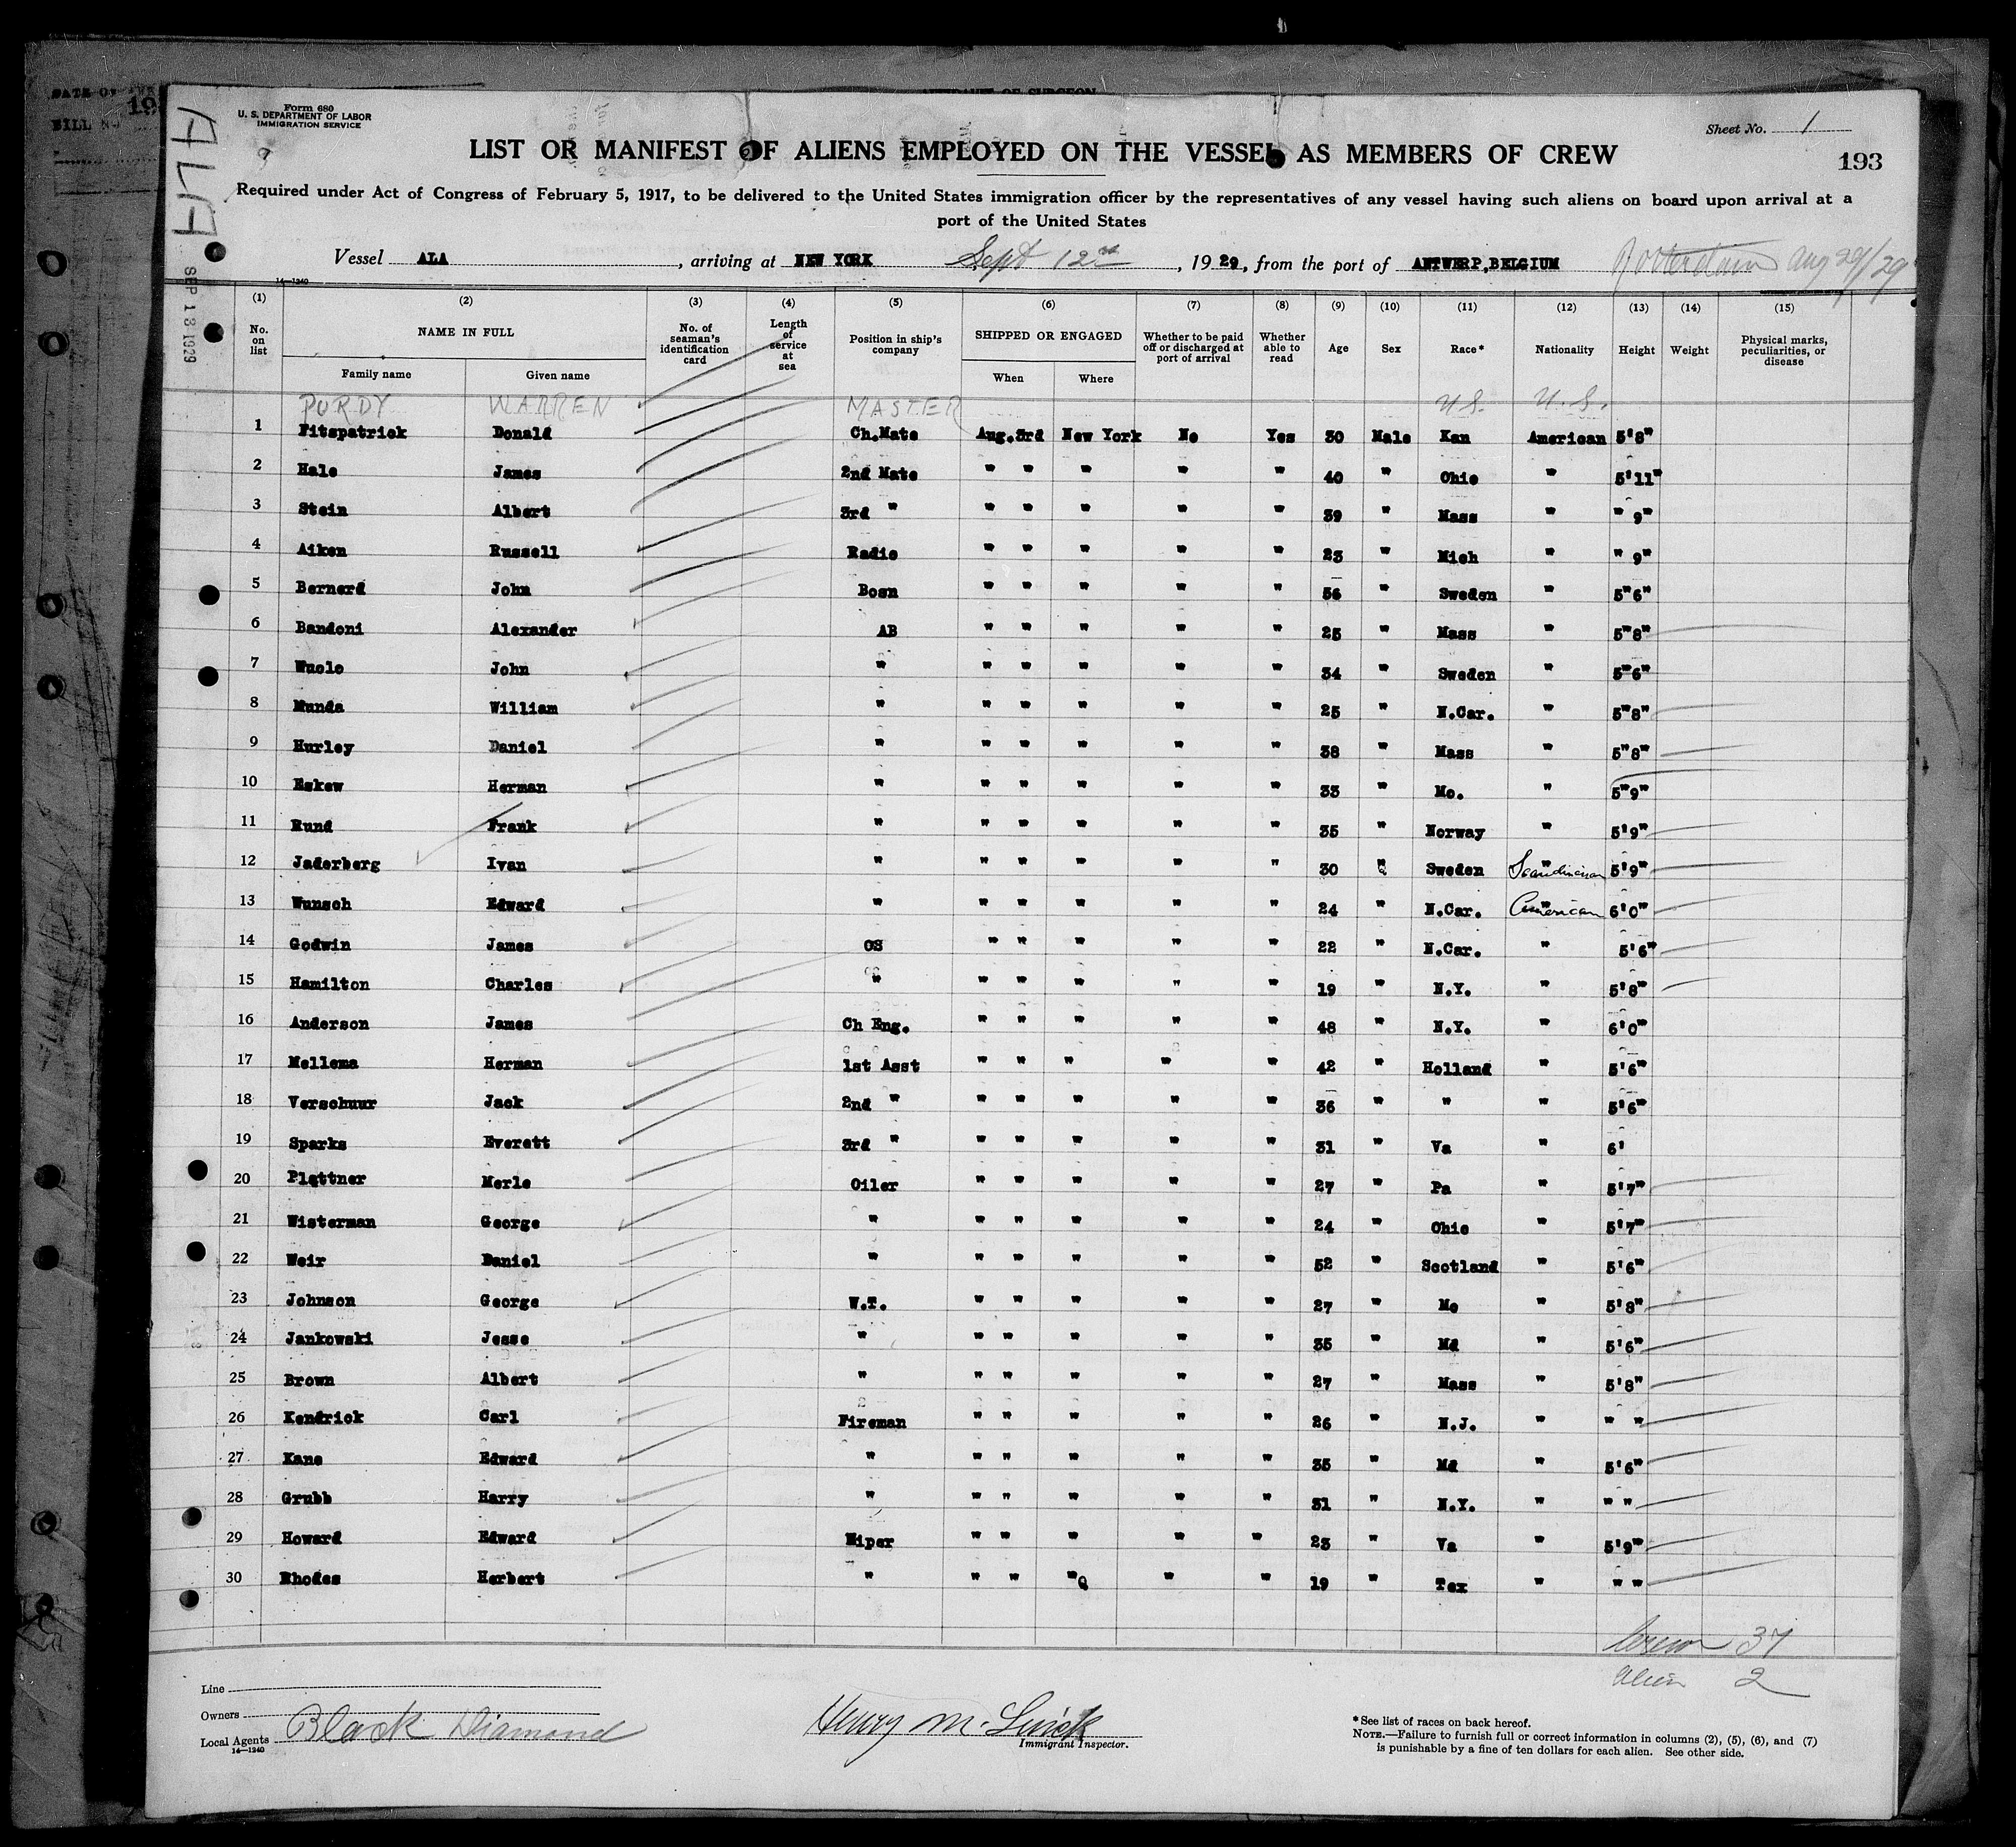 Form 680
U. S. DEPARTMENT OF LABOR
IMMIGRATION SERVICE
Sheet No. 1
ALA
LIST OR MANIFEST OF ALIENS EMPLOYED ON THE VESSEL AS MEMBERS OF CREW
193
Required under Act of Congress of February 5, 1917, to be delivered to the United States immigration officer by the representatives of any vessel having such aliens on board upon arrival at a
port of the United States
Vessel ALA, arriving at NEW YORK Sept 12, 1929, from the port of ANTWERP, BELGIUM Rotterdam Aug 29/29
SEP 13 1929
14-1240
(1) (2) (3) (4) (5) (6) (7) (8) (9) (10) (11) (12) (13) (14) (15)
No. on list NAME IN FULL Family name Given name No. of seaman's identification card Length of service at sea Position in ship's company SHIPPED OR ENGAGED When Where Whether to be paid off or discharged at port of arrival Whether able to read Age Sex Race* Nationality Height Weight Physical marks, peculiarities, or disease
PURDY WARREN MASTER U.S. U.S.
1 Fitzpatrick Donald Ch.Mate Aug.3rd New York No Yes 30 Male Kan American 5'8"
2 Hale James 2nd Mate " " " " " 40 " Ohio " 5'11"
3 Stein Albert 3rd " " " " " " 39 " Mass " " 9"
4 Aiken Russell Radio " " " " " 23 " Mich " " 9"
5 Bernerd John Bosn " " " " " 56 " Sweden " 5"6"
6 Bandoni Alexander AB " " " " " 25 " Mass " 5"8"
7 Wuolo John " " " " " " 34 " Sweden " 5"6"
8 Munda William " " " " " " 25 " N.Car. " 5"8"
9 Hurley Daniel " " " " " " 38 " Mass " 5"8"
10 Eskew Herman " " " " " " 33 " Mo. " 5"9"
11 Rund Frank " " " " " " 35 " Norway " 5'9"
12 Jaderberg Ivan " " " " " " 30 " Sweden " Scandinavian 5'9"
13 Wunsch Edward " " " " " " 24 " N.Car. " American 6'0"
14 Godwin James OS " " " " " 22 " N.Car. " 5'6"
15 Hamilton Charles " " " " " " 19 " N.Y. " 5'8"
16 Anderson James Ch Eng. " " " " " 48 " N.Y. " 6'0"
17 Mellema Herman 1st Asst " " " " " 42 " Holland " 5'6"
18 Verschuur Jack 2nd " " " " " " 36 " " " 5'6"
19 Sparks Everett 3rd " " " " " " 31 " Va " 6'
20 Plettner Merle Oiler " " " " " 27 " Pa " 5'7"
21 Wisterman George " " " " " " 24 " Ohio " 5'7"
22 Weir Daniel " " " " " " 52 " Scotland " 5'6"
23 Johnson George W.T. " " " " " 27 " Me " 5'8"
24 Jankowski Jesse " " " " " " 35 " Md " 5'6"
25 Brown Albert " " " " " " 27 " Mass " 5'8"
26 Kendrick Carl Fireman " " " " " 26 " N.J. " " "
27 Kane Edward " " " " " " 35 " Md " 5'6"
28 Grubb Harry " " " " " " 31 " N.Y. " " "
29 Howard Edward Wiper " " " " " 23 " Va " 5'9"
30 Rhodes Herbert " " " " " " 19 " Tex " " "
Crew 37
Alien 2
Line
Owners
Local Agents Black Diamond
14-1240
Henry M.
Immigrant Inspector.
*See list of races on back hereof.
NOTE.—Failure to furnish full or correct information in columns (2), (5), (6), and (7)
is punishable by a fine of ten dollars for each alien. See other side.